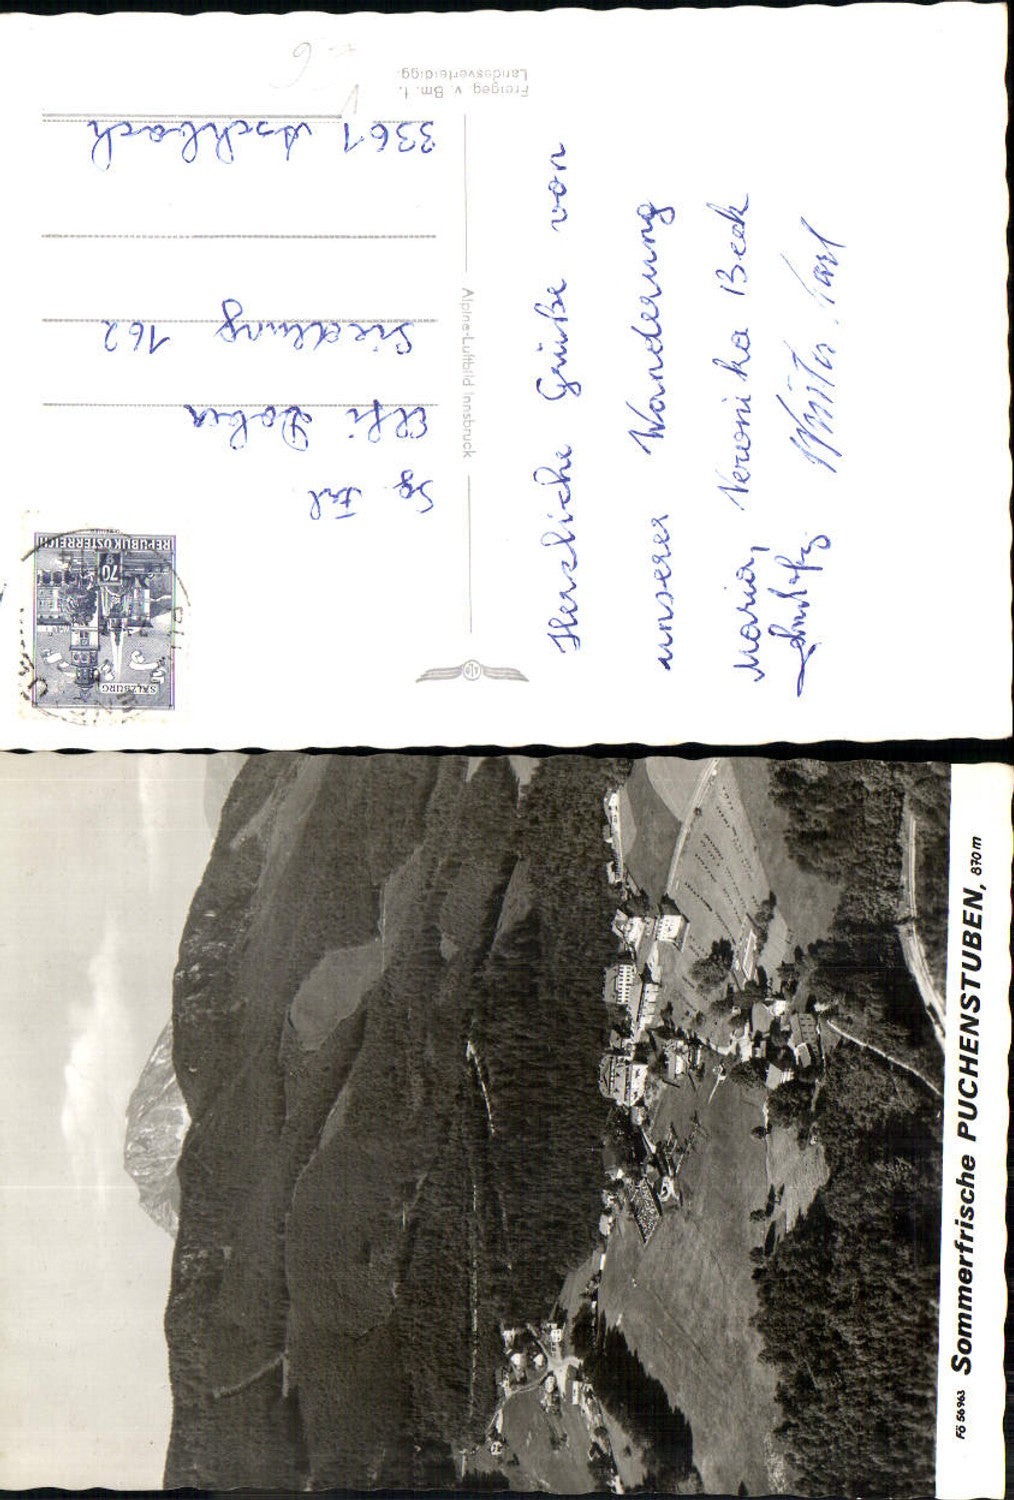 Freigeg. v. Bm. f.
Landesverteidigg.
Alpine-Luftbild Innsbruck
REPUBLIK ÖSTERREICH
70
SALZBURG
Herzliche Grüße von
unserer Wanderung
Maria, Veronika Beck
Karl
Sg. Frl.
Elfi
Siedlung 162
3361 Aschbach
Fö 56963 Sommerfrische PUCHENSTUBEN, 870 m